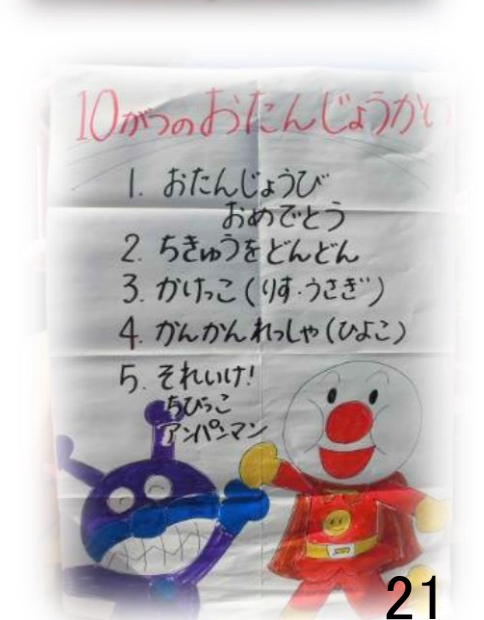 10がつのおたんじょうかい
1. おたんじょうび
おめでとう
2. ちきゅうをどんどん
3. かけっこ(りす・うさぎ)
4. かんかんれっしゃ(ひよこ)
5. それいけ!
ちびっこ
アンパンマン
21